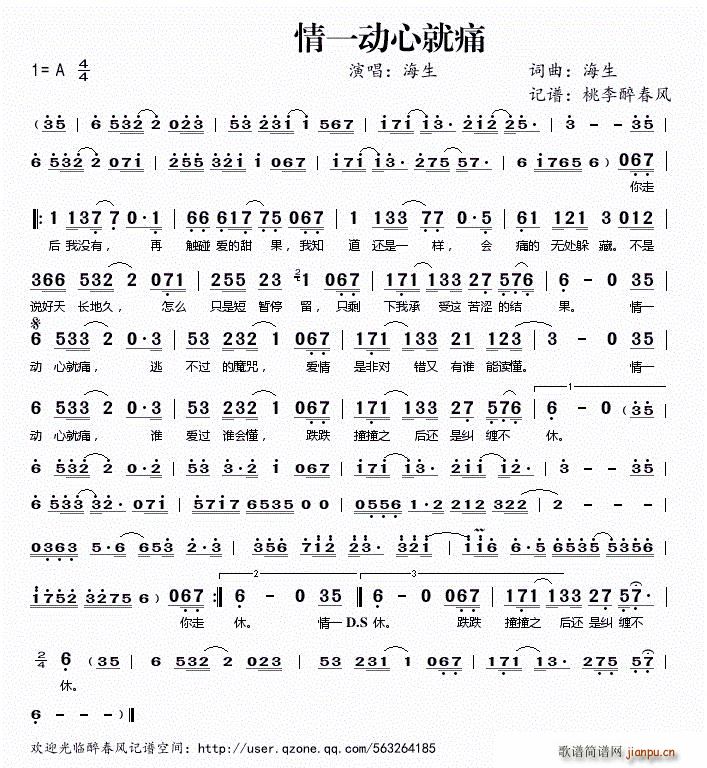 情一动心就痛
1= A 4/4 演唱：海生 词曲：海生
记谱：桃李醉春风
（35 | 6 532 2 023 | 53 231 1 567 | 171 13· 212 25· | 3 - - 35 |
6 532 2 071 | 255 321 1 067 | 171 13· 275 57· | 6 1765 6 ) 067 |
你走
|: 1 137 7 0·1 | 66 617 75 067 | 1 133 77 0·5 | 61 121 3 012 |
后 我没有， 再 触碰 爱的甜 果，我知 道 还是一 样， 会 痛的 无处躲 藏。不是
366 532 2 071 | 255 23 2/4 1 067 | 171 133 27 576 | 6 - 0 35 |
说好天 长地久， 怎么 只是短 暂停 留，只剩 下我承 受这 苦涩 的结 果。 情一
6 533 2 0·3 | 53 232 1 067 | 171 133 21 123 | 3 - 0 35 |
动 心就痛， 逃 不过 的魔咒， 爱情 是非对 错又 有谁 能读懂。 情一
6 533 2 0·3 | 53 232 1 067 | 171 133 27 576 | 1 6 - 0 (35 |
动 心就痛， 谁 爱过 谁会懂， 跌跌 撞撞之 后还 是纠 缠不 休。
6 532 2 0·2 | 53 231 1 067 | 171 13· 211 12· | 3 - - 35 |
6 533 32· 071 | 5717 6535 0 0 | 0556 1·2 212 322 | 2 - -
0363 5·6 653 2·3 | 356 712 23· 321 | 1 116 6·5 6535 5356 |
1752 3275 6 ) 067 :| 2 6 - 0 35 | 3 6 - 0 067 | 171 133 27 57· |
你走 休。 情一 D.S 休。 跌跌 撞撞之 后还 是纠 缠不
2/4 6 (35 | 6 532 2 023 | 53 231 1 067 | 171 13· 275 57 |
休。
6 - - )||
欢迎光临醉春风记谱空间：http://user.qzone.qq.com/563264185
歌谱简谱网
jianpu.cn